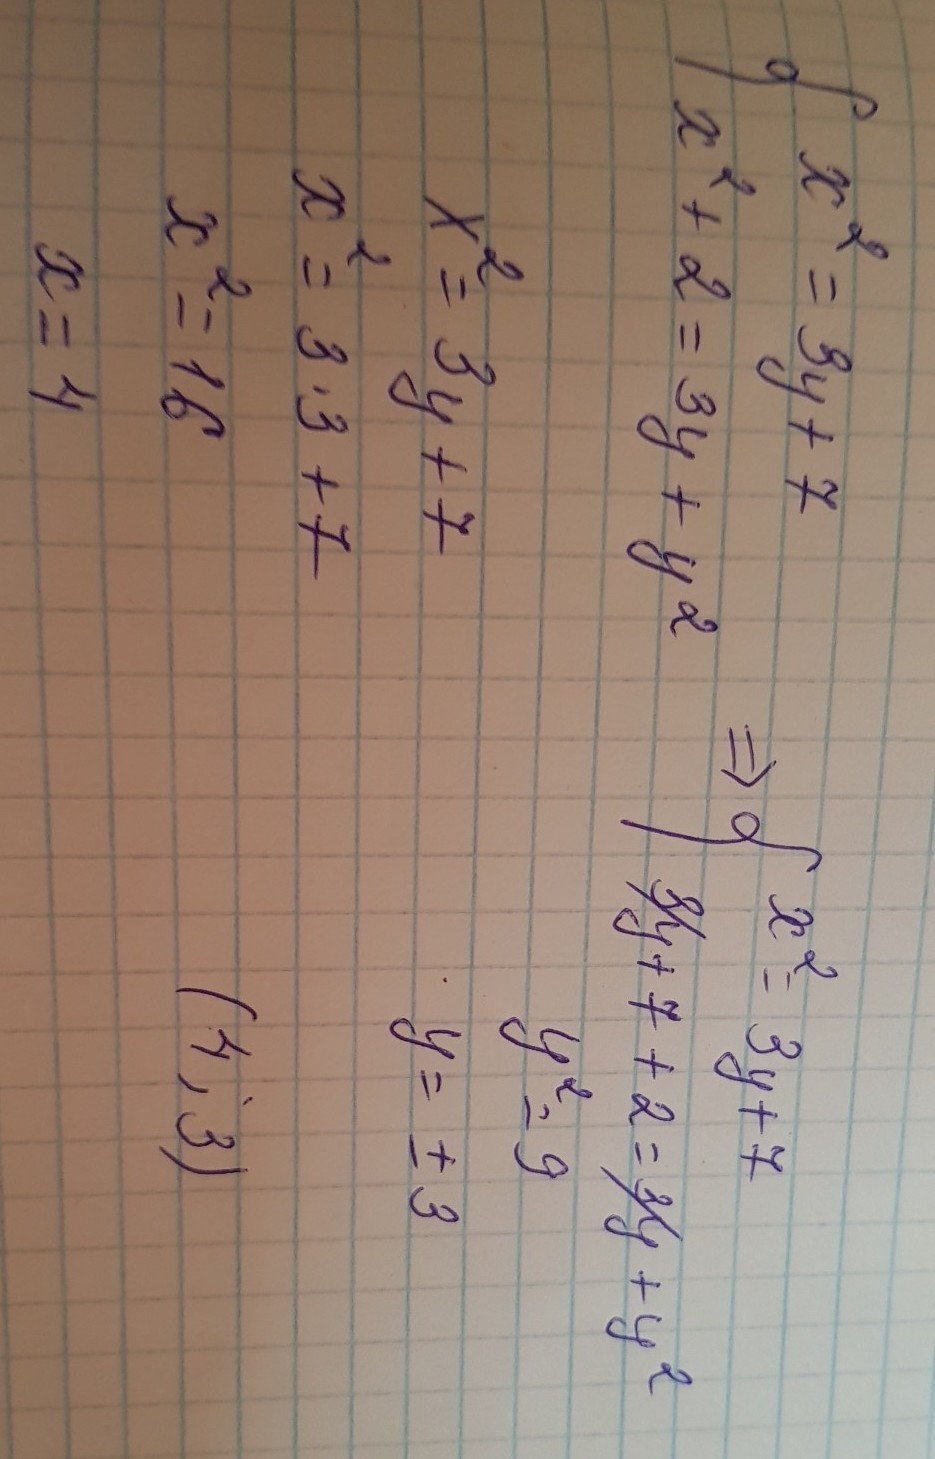 { x² = 3y + 7
x² + 2 = 3y + y²
⇒ { x² = 3y + 7
3y + 7 + 2 = 3y + y²
y² = 9
y = ± 3
x² = 3y + 7
x² = 3·3 + 7
x² = 16
x = 4
(4; 3)